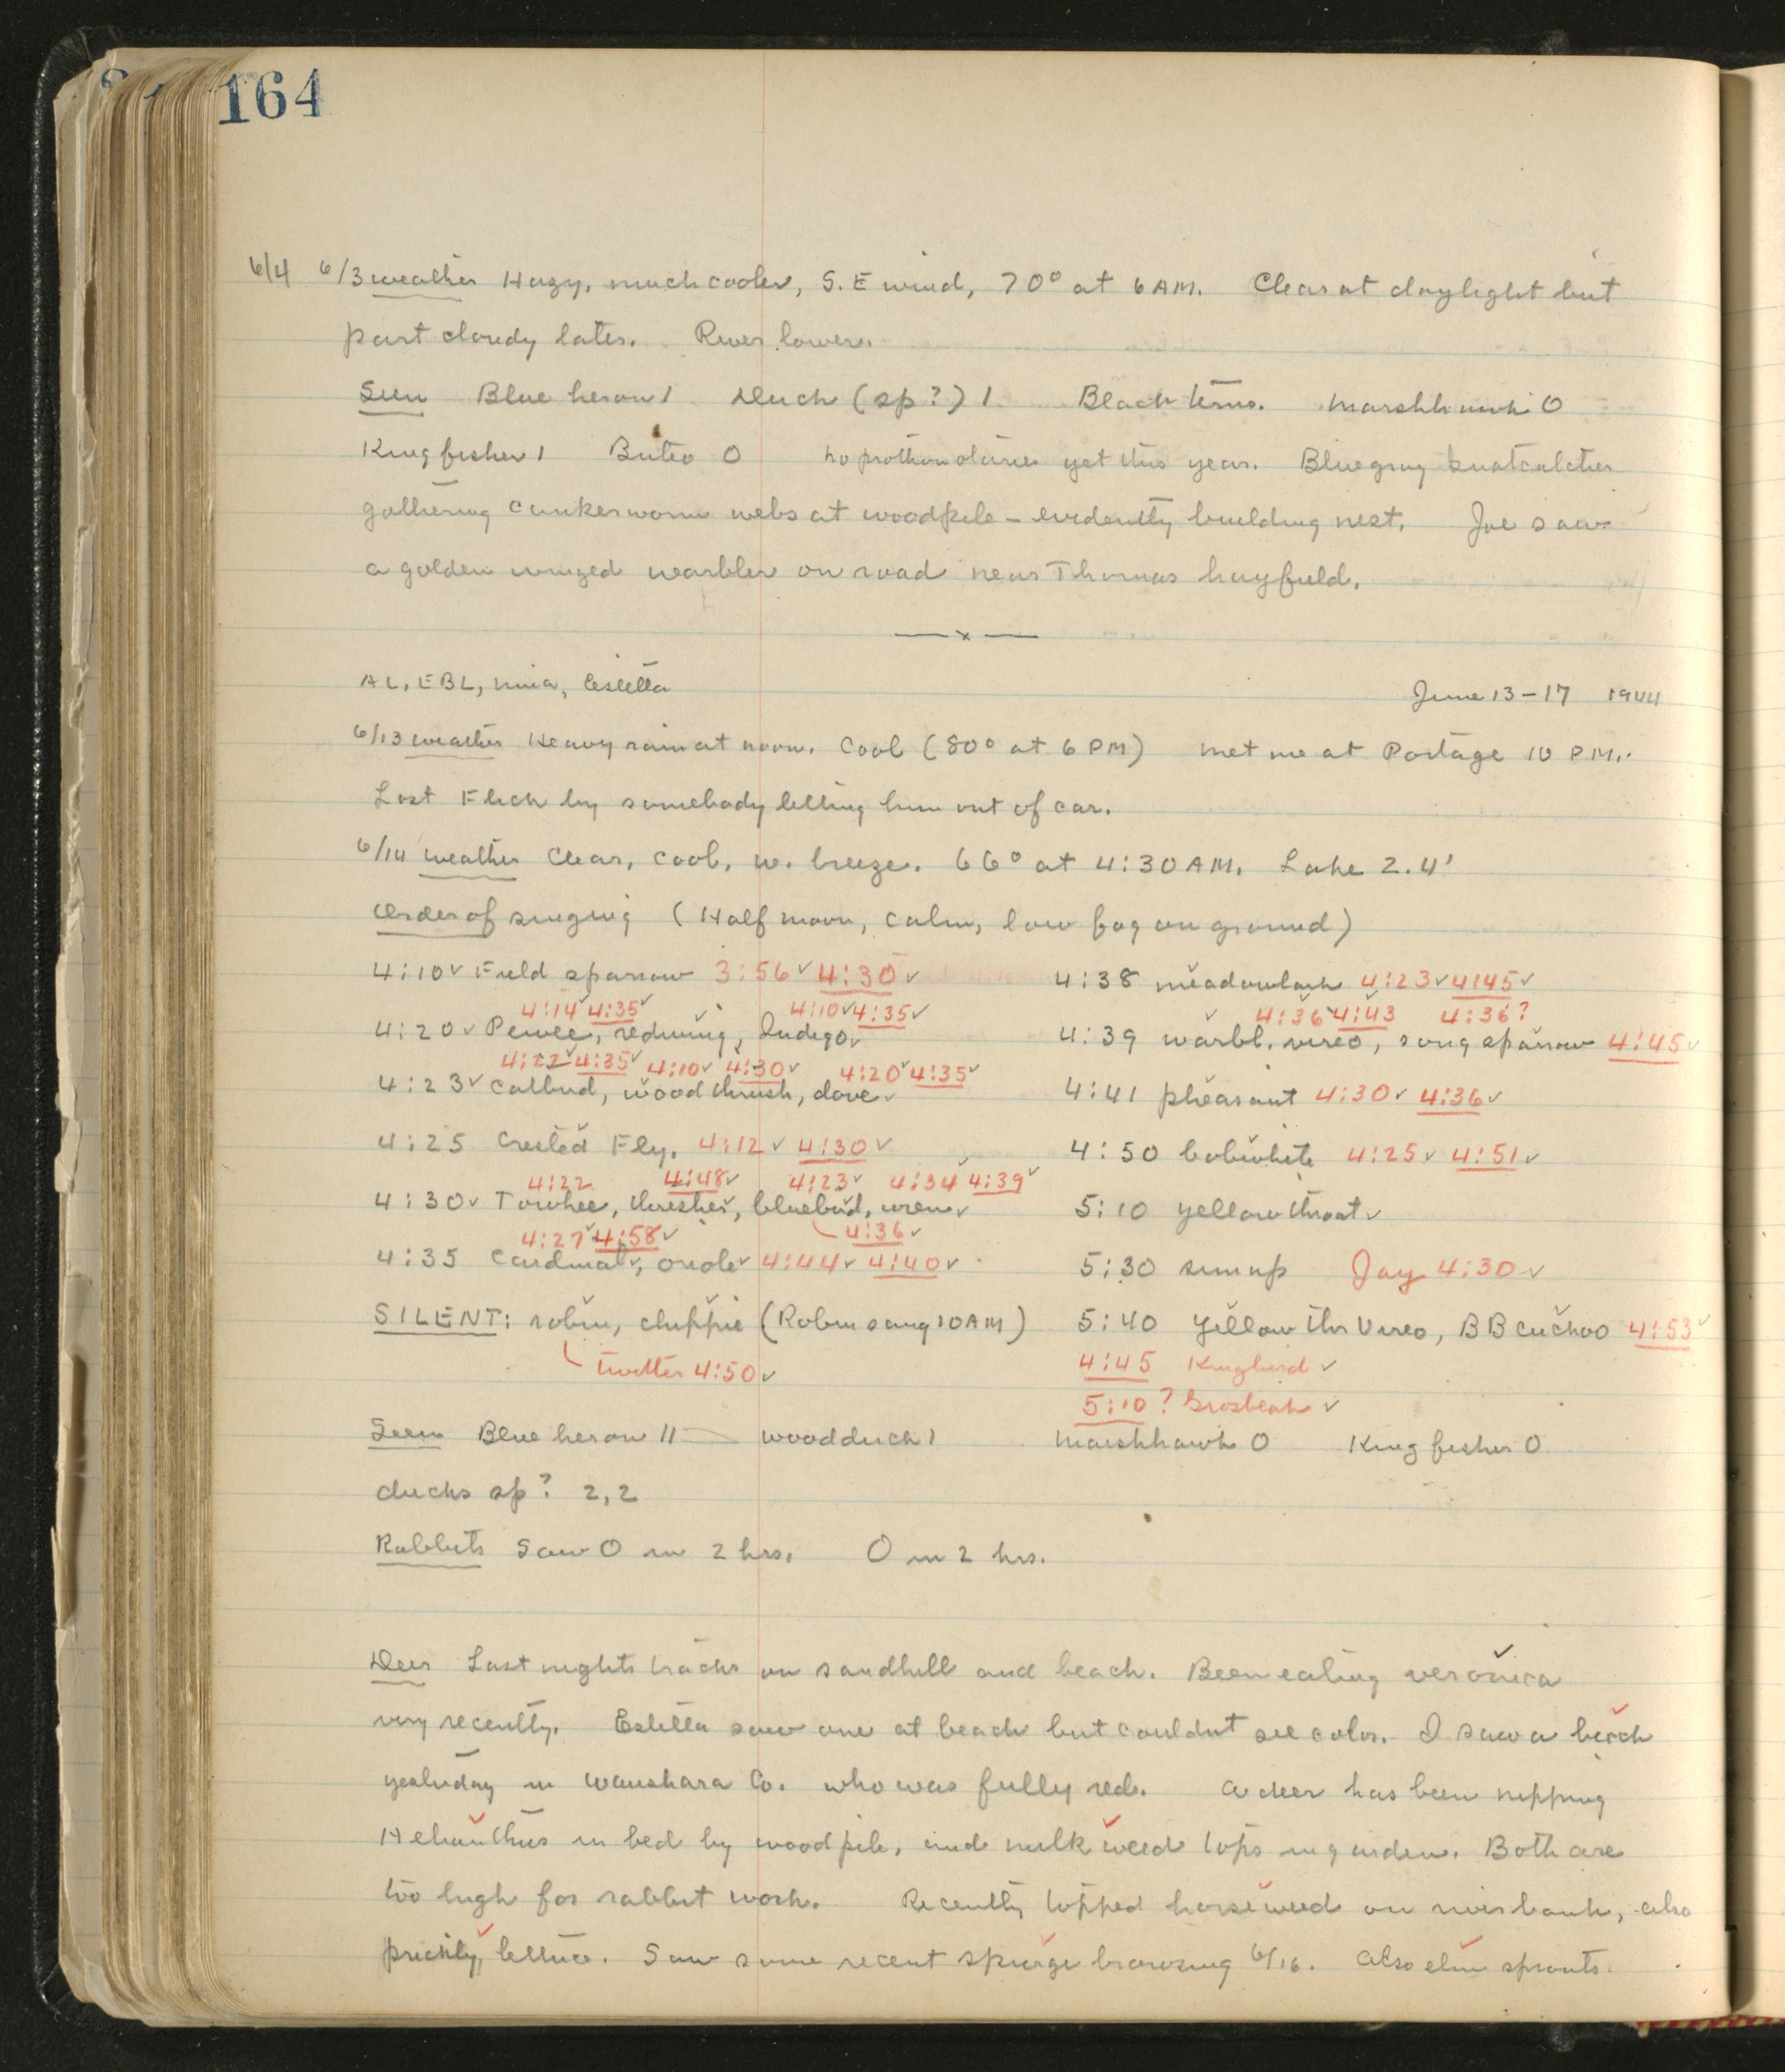 164
6/4 6/3 weather Hazy, much cooler, S.E wind, 70° at 6 AM. Clear at daylight but
part cloudy later. River lower.
Seen Blue heron 1 Duck (sp?) 1 Black terns. Marshhawk 0
Kingfisher 1 Buteo 0 No prothonotaries yet this year. Bluegray knatcatcher
gathering cankerworm webs at woodpile - evidently building nest. Joe saw
a golden winged warbler on road near Thomas hayfield.
—x—
AL, EBL, Nina, Estella June 13-17 1944
6/13 weather Heavy rain at noon. Cool (80° at 6 PM) Met me at Portage 10 PM.
Lost Flick by somebody letting him out of car.
6/14 weather Clear, cool, w. breeze. 66° at 4:30 AM. Lake 2.4'
Order of singing (Half moon, calm, low fog on ground)
4:10✓ Field sparrow 3:56✓ 4:30✓ 4:38 meadowlark 4:23✓ 4:45✓
4:14✓ 4:35✓ 4:10✓ 4:35✓ 4:36✓ 4:43 4:36?
4:20✓ Pewee, redwing, Indigo✓ 4:39 warbl. vireo, song sparrow 4:45✓
4:22✓ 4:35✓ 4:10✓ 4:30✓ 4:20✓ 4:35✓
4:23✓ catbird, wood thrush, dove✓ 4:41 pheasant 4:30✓ 4:36✓
4:25 Crested Fly. 4:12✓ 4:30✓ 4:50 bobwhite 4:25✓ 4:51✓
4:22 4:48✓ 4:23✓ 4:34 4:39✓
4:30✓ Towhee, thresher, bluebird, wren✓ 5:10 yellowthroat✓
4:27✓ 4:58✓ 4:36✓
4:35 Cardinal✓, oriole✓ 4:44✓ 4:40✓ 5:30 sunup Jay 4:30✓
SILENT: robin, chippie (Robin sang 10 AM) 5:40 Yellow thr Vireo, BB cuckoo 4:53✓
twitter 4:50✓ 4:45 Kingbird ✓
5:10? Grosbeak ✓
Seen Blue heron 11 woodduck 1 Marshhawk 0 Kingfisher 0
ducks sp? 2,2
Rabbits Saw 0 in 2 hrs. 0 in 2 hrs.
Deer Last nights tracks on sandhill and beach. Been eating veronica
very recently. Estella saw one at beach but couldnt see color. I saw a
yesterday in Waushara Co. who was fully red. A deer has been nipping
Helianthus in bed by woodpile, and milkweed tops in garden. Both are
too high for rabbit work. Recently topped horseweed on riverbank, also
prickly lettuce. Saw some recent spurge browsing 6/16. Also elm sprouts.